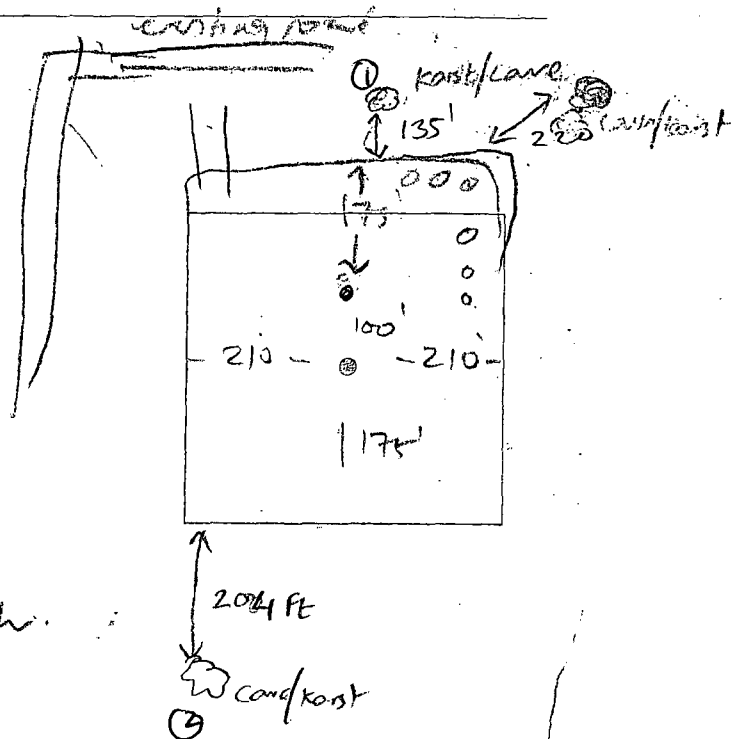 existing road
① Karst/Cave
135'
220 Cave/karst
175'
100'
- 210 - - 210 -
175'
204 Ft
Cave/Karst
②